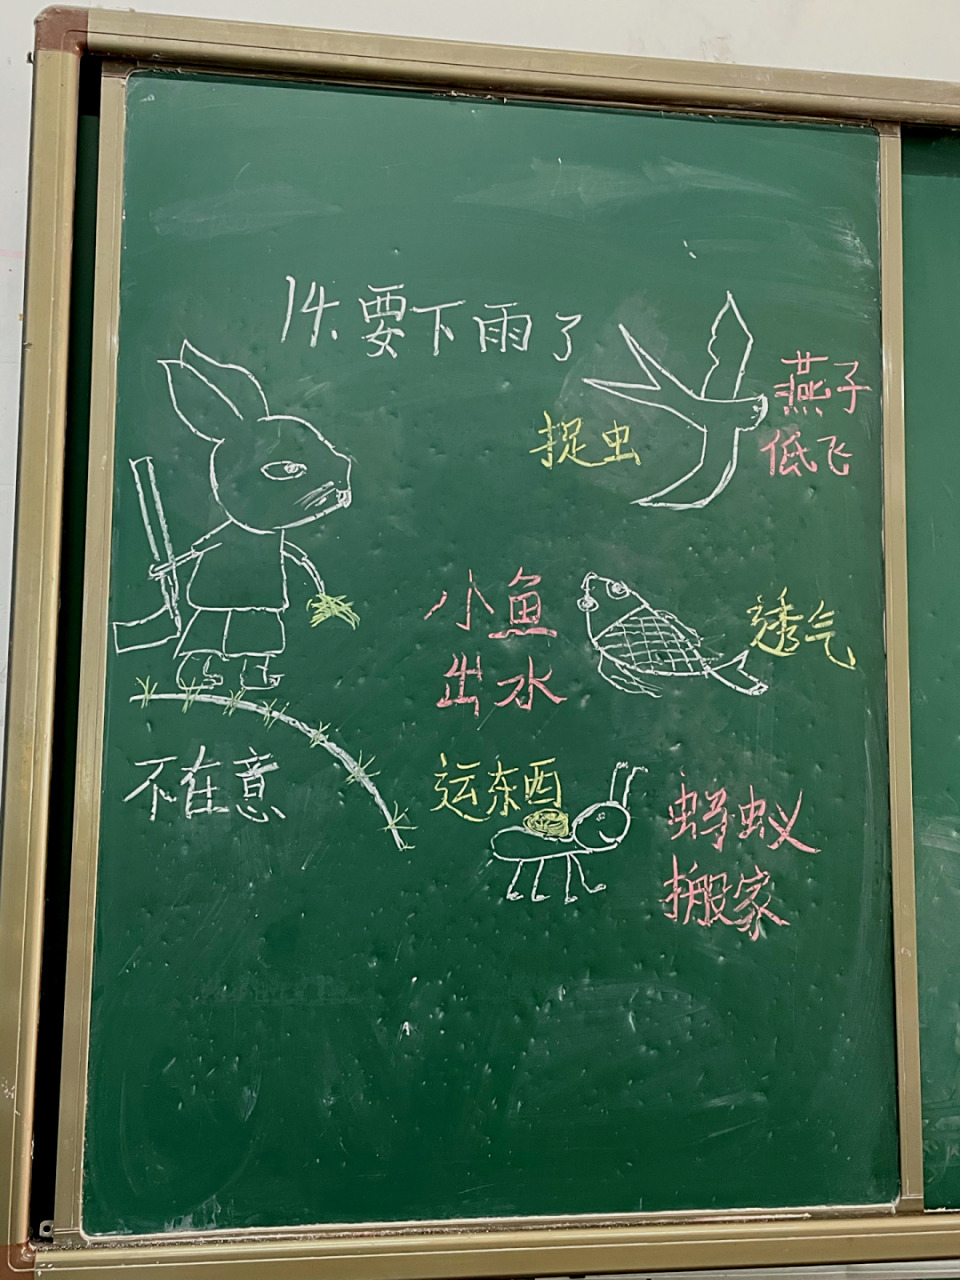 14.要下雨了
燕子
低飞
捉虫
小鱼
出水
透气
不在意
运东西
蚂蚁
搬家